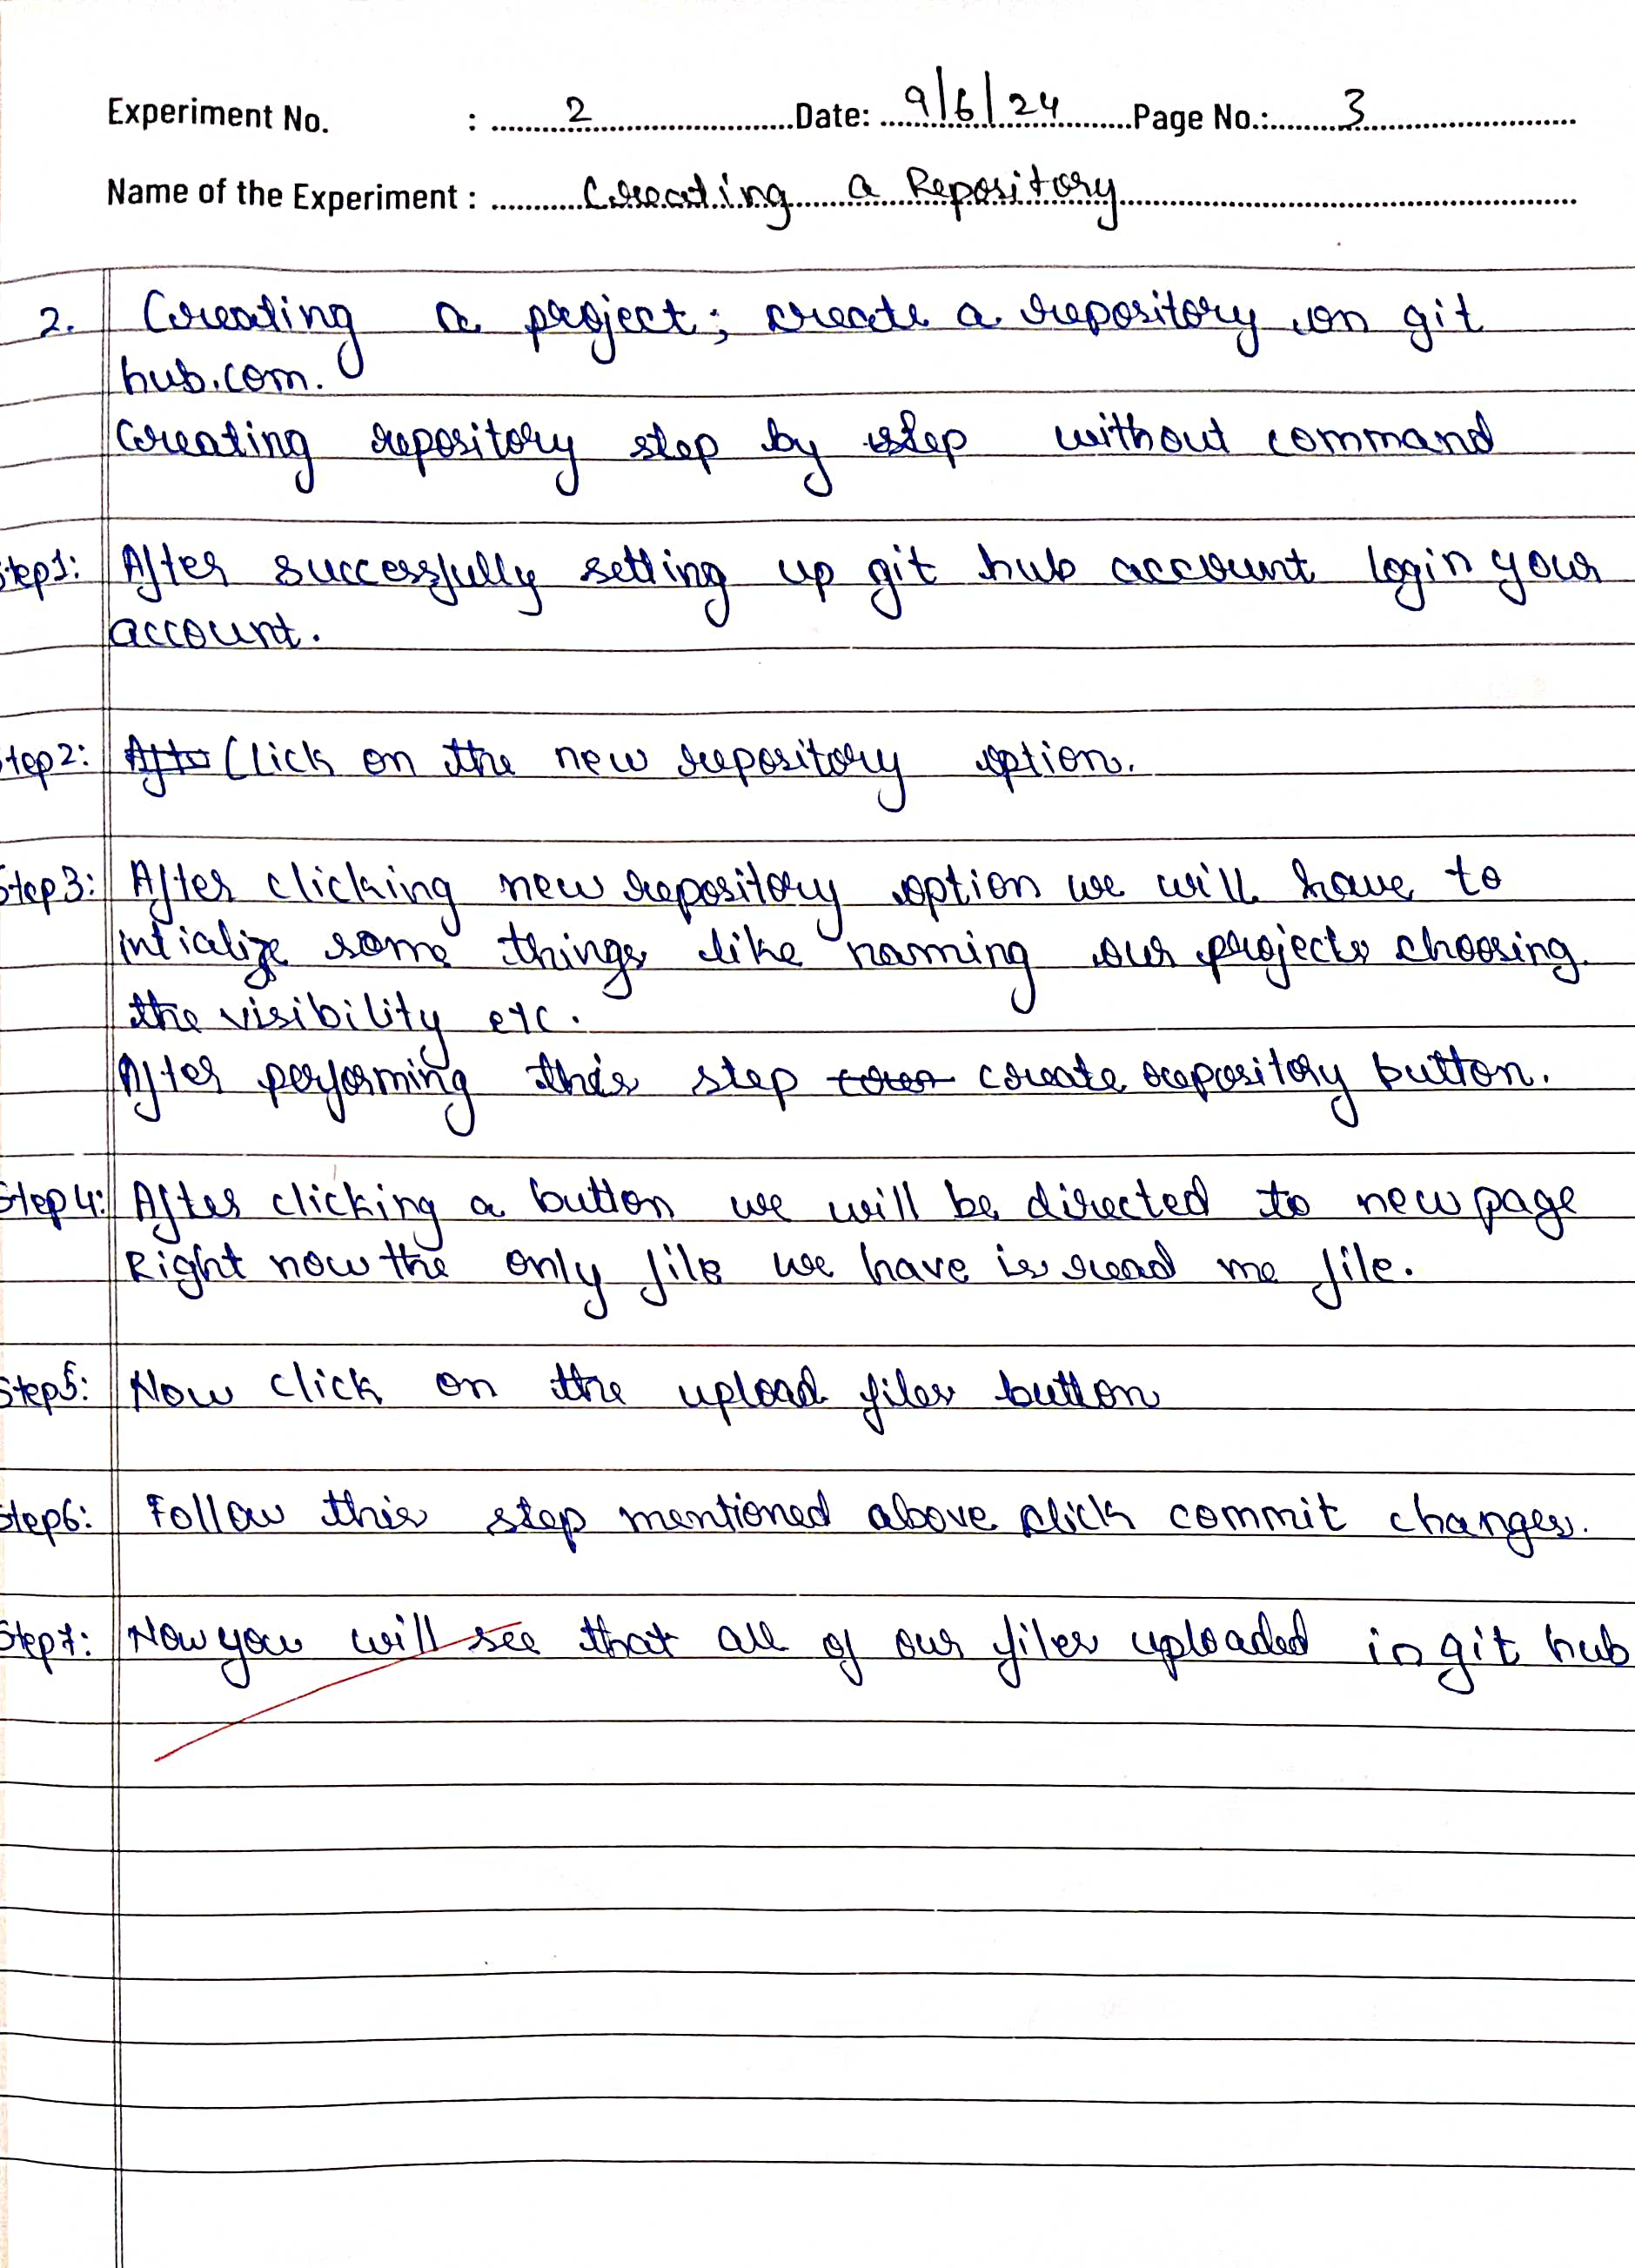 Experiment No. : 2 Date: 9/6/24 Page No.: 3
Name of the Experiment : Creating a Repository
2. Creating a project; create a repository on git
hub.com.
Creating repository step by step without command
Step1: After successfully setting up git hub account login your
account.
Step2: Click on the new repository option.
Step3: After clicking new repository option we will have to
intialize some things like naming our projects choosing.
the visibility etc.
After performing this step create repository button.
Step4: After clicking a button we will be directed to new page
Right now the only file we have is read me file.
Step5: Now click on the upload files button
Step6: Follow this step mentioned above click commit changes.
Step7: Now you will see that all of our files uploaded in git hub